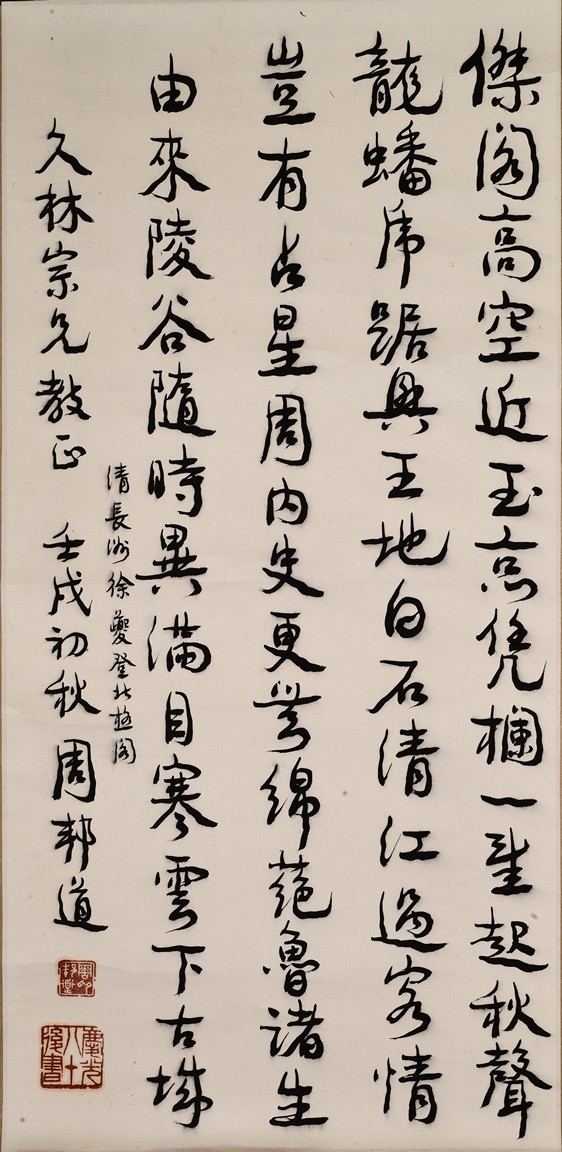 傑閣高空近玉京凭欄一望起秋聲
龍蟠虎踞興王地白石清江過客情
豈有占星周内史更無綿蕝魯諸生
由來陵谷隨時異滿目寒雲下古城
清長洲徐夔登北極閣
久林宗兄教正 壬戌初秋 周邦道
周印邦道
慶光八十後書